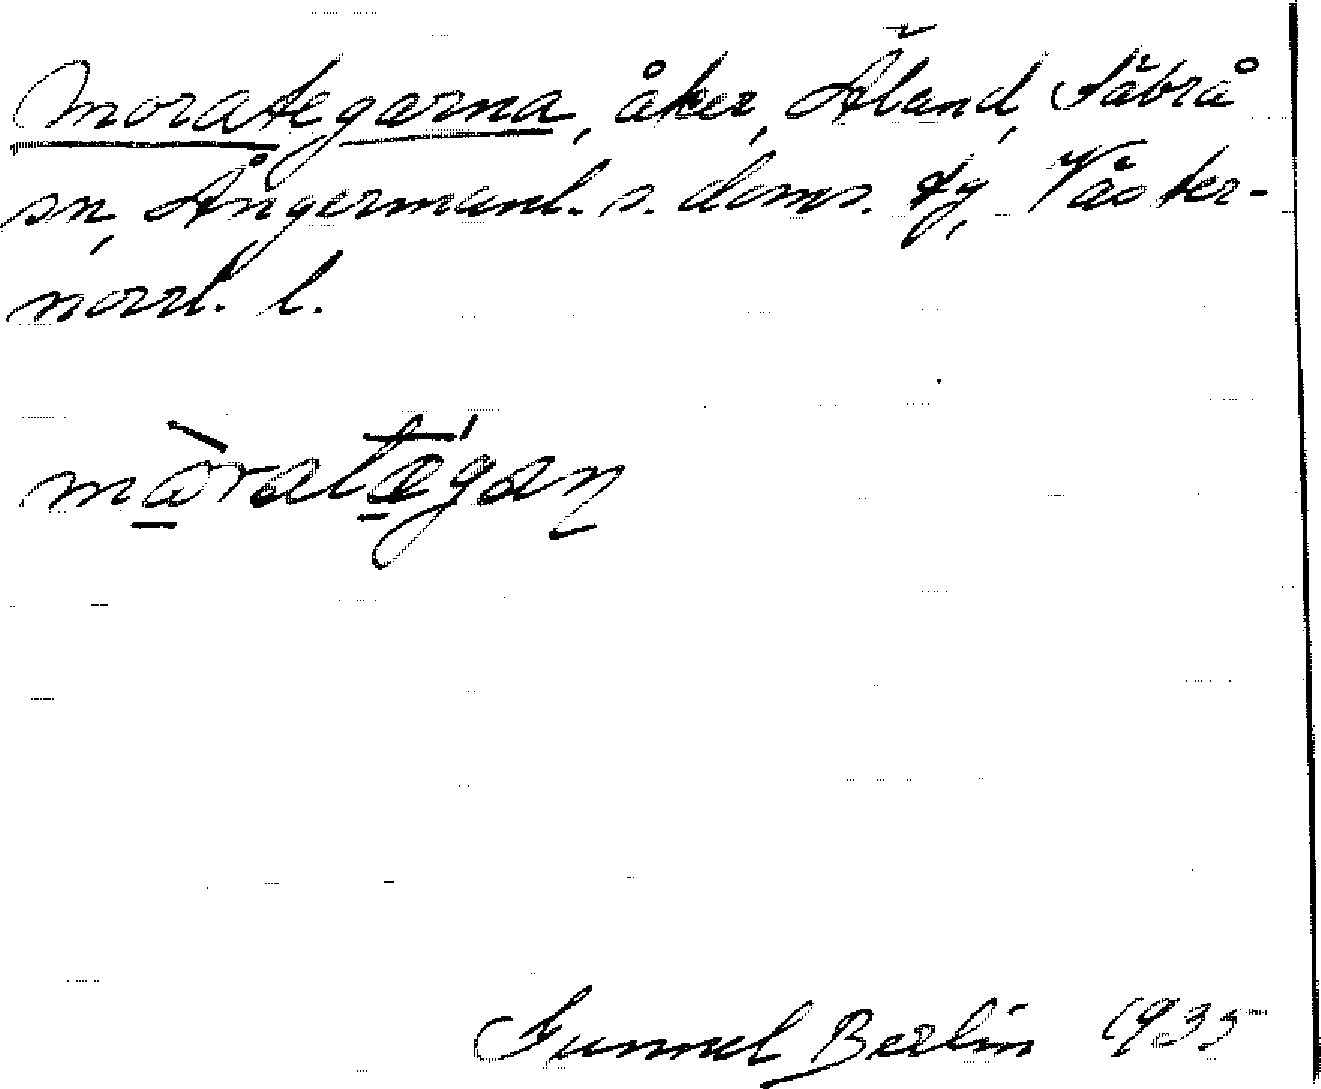 Morategarna, åker, Äland, Säbrå
sn, Ångermanl. s. doms. tg, Väster-
norrl. l.
mòratégan
Gunnel Berlin 1935